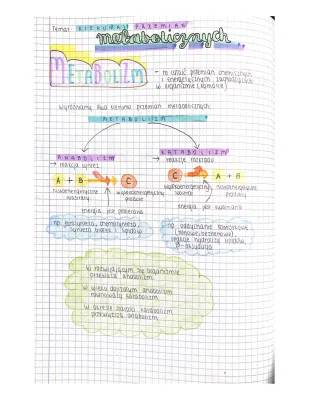 Temat: KIERUNKI PRZEMIAN
metabolicznych
METABOLIZM
- to całość przemian chemicznych
i energetycznych zachodzących
w organizmie (komórce)
Wyróżniamy dwa kierunki przemian metabolicznych:
METABOLIZM
ANABOLIZM
KATABOLIZM
→ reakcje syntez
→ reakcje rozkładu
A + B → C
C → A + B
niskoenergetyczne
substraty
wysokoenergetyczny
produkt
wysokoenergetyczny
substrat
niskoenergetyczne
produkty
energia jest pobierana
energia jest uwalniana
np. fotosynteza, chemosynteza,
synteza białek i lipidów
np. oddychanie komórkowe
(tlenowe/beztlenowe),
reakcje hydrolizy lipidów,
β-oksydacja
W rozwijającym się organizmie
przeważa anabolizm
W wieku dojrzałym anabolizm
równoważy katabolizm
W okresie starości katabolizm
przewyższa anabolizm